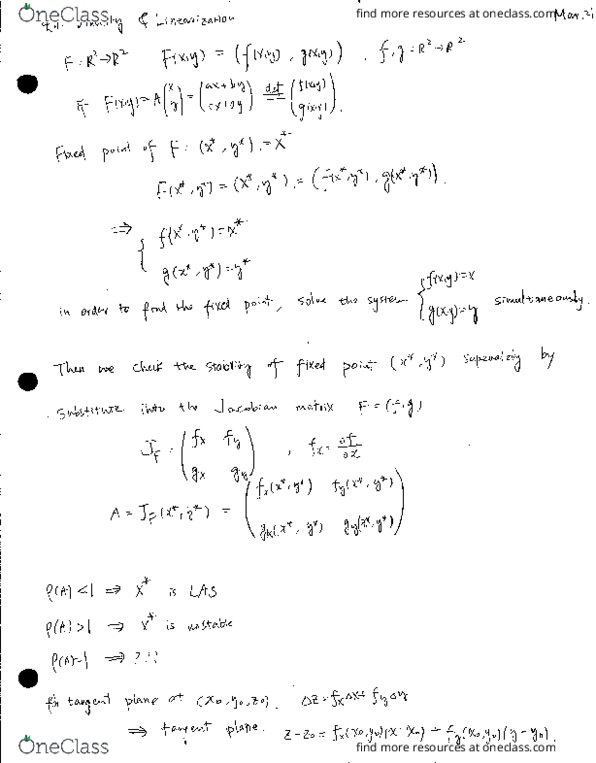 OneClass
find more resources at oneclass.com
Mar. 2
& Linearization
F: R²→R² F(x,y) = (f(x,y), g(x,y)), f, g : R²→R²
F(x,y) = A(x y) = (ax+by cx+dy) def= (f(x,y) g(x,y)).
Fixed point of F: (x*, y*) = X*
F(x*, y*) = (x*, y*) = (f(x*, y*), g(x*, y*)).
⇒ { f(x*, y*) = x*
g(x*, y*) = y*
in order to find the fixed point, solve the system { f(x,y) = x g(x,y) = y simultaneously.
Then we check the stability of fixed point (x*, y*) by
substitute into the Jacobian matrix F = (f, g)
J_F : (f_x f_y g_x g_y), f_x = ∂f/∂x
A = J_F(x*, y*) = (f_x(x*, y*) f_y(x*, y*)
g_x(x*, y*) g_y(x*, y*))
ρ(A) < 1 ⇒ X* is LAS
ρ(A) > 1 ⇒ X* is unstable
ρ(A) = 1 ⇒ ???
tangent plane at (x₀, y₀, z₀). Δz = f_xΔx + f_yΔy
⇒ tangent plane. z - z₀ = f_x(x₀, y₀)(x - x₀) + f_y(x₀, y₀)(y - y₀).
OneClass
find more resources at oneclass.com